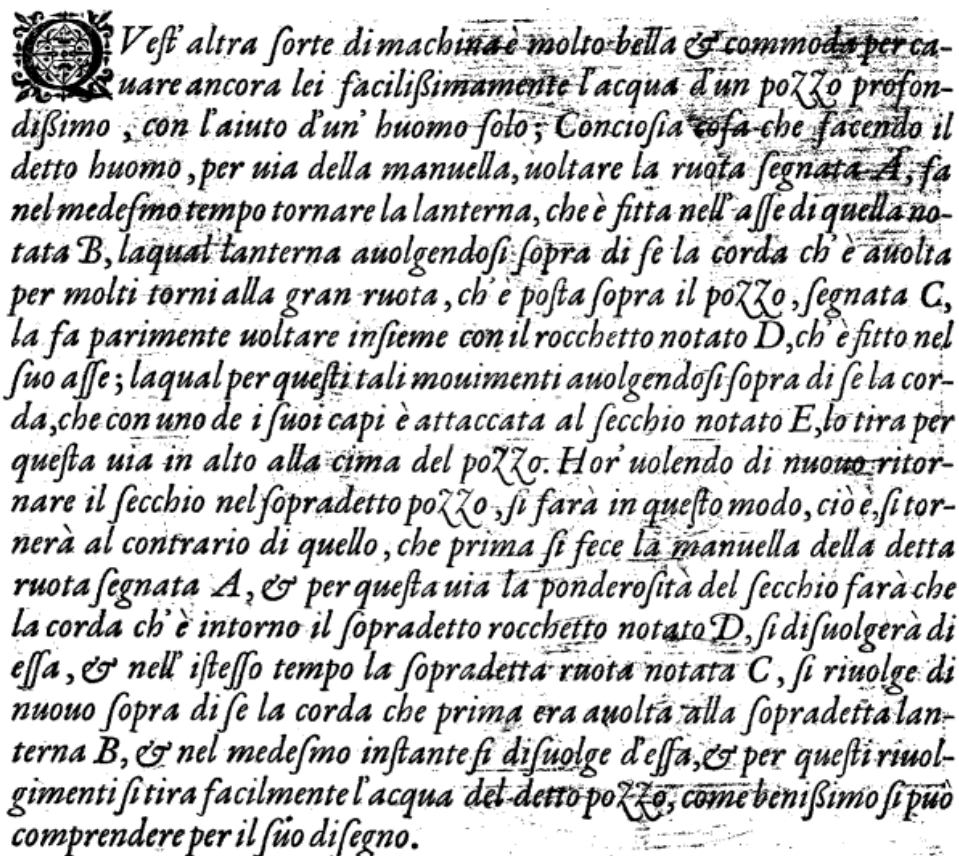 QVeſt' altra ſorte di machina è molto bella & commoda per ca-
uare ancora lei faciliſsimamente l'acqua d'un pozzo profon-
diſsimo , con l'aiuto d'un' huomo ſolo ; Concioſia coſa che facendo il
detto huomo , per uia della manuella, uoltare la ruota ſegnata A, fa
nel medeſmo tempo tornare la lanterna, che è fitta nell' aſſe di quella no-
tata B, laqual lanterna auolgendoſi ſopra di ſe la corda ch' è auolta
per molti torni alla gran ruota , ch' è poſta ſopra il pozzo , ſegnata C,
la fa parimente uoltare inſieme con il rocchetto notato D, ch' è fitto nel
ſuo aſſe ; laqual per queſti tali mouimenti auolgendoſi ſopra di ſe la cor-
da, che con uno de i ſuoi capi è attaccata al ſecchio notato E, lo tira per
queſta uia in alto alla cima del pozzo. Hor' uolendo di nuouo ritor-
nare il ſecchio nel ſopradetto pozzo , ſi farà in queſto modo, ciò è, ſi tor-
nerà al contrario di quello , che prima ſi fece la manuella della detta
ruota ſegnata A , & per queſta uia la ponderoſità del ſecchio farà che
la corda ch' è intorno il ſopradetto rocchetto notato D, ſi diſuolgerà di
eſſa , & nell' iſteſſo tempo la ſopradetta ruota notata C , ſi riuolge di
nuouo ſopra di ſe la corda che prima era auolta alla ſopradetta lan-
terna B, & nel medeſmo inſtante ſi diſuolge d'eſſa, & per queſti riuol-
gimenti ſi tira facilmente l'acqua del detto pozzo, come beniſsimo ſi può
comprendere per il ſuo diſegno.